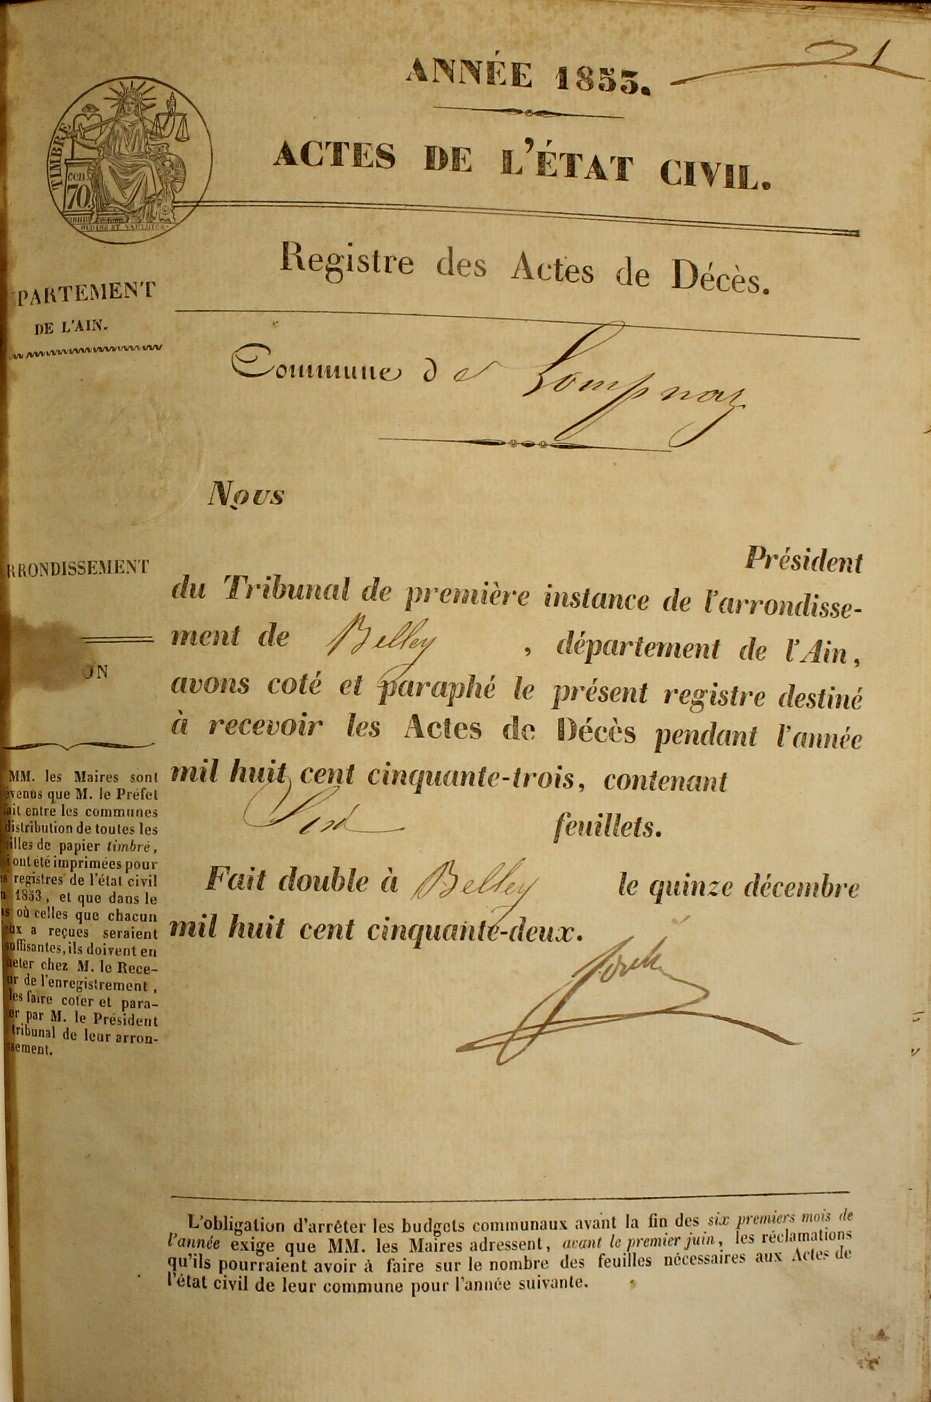 ANNÉE 1853.
ACTES DE L'ÉTAT CIVIL.
TIMBRE
cen
70
Registre des Actes de Décès.
PARTEMENT
DE L'AIN.
Commune de Lompnaz
Nous
Président
du Tribunal de première instance de l'arrondisse-
ment de Belley, département de l'Ain,
avons coté et paraphé le présent registre destiné
à recevoir les Actes de Décès pendant l'année
mil huit cent cinquante-trois, contenant
Six feuillets.
Fait double à Belley le quinze décembre
mil huit cent cinquante-deux.
RRONDISSEMENT
ON
MM. les Maires sont
venus que M. le Préfet
ait entre les communes
distribution de toutes les
illes de papier timbré,
ont été imprimées pour
registres de l'état civil
1853, et que dans le
où celles que chacun
ux a reçues seraient
uffisantes, ils doivent en
eter chez M. le Rece-
ur de l'enregistrement,
les faire coter et para-
er par M. le Président
tribunal de leur arron-
sement.
L'obligation d'arrêter les budgets communaux avant la fin des six premiers mois de
l'année exige que MM. les Maires adressent, avant le premier juin, les réclamations
qu'ils pourraient avoir à faire sur le nombre des feuilles nécessaires aux Actes de
l'état civil de leur commune pour l'année suivante.